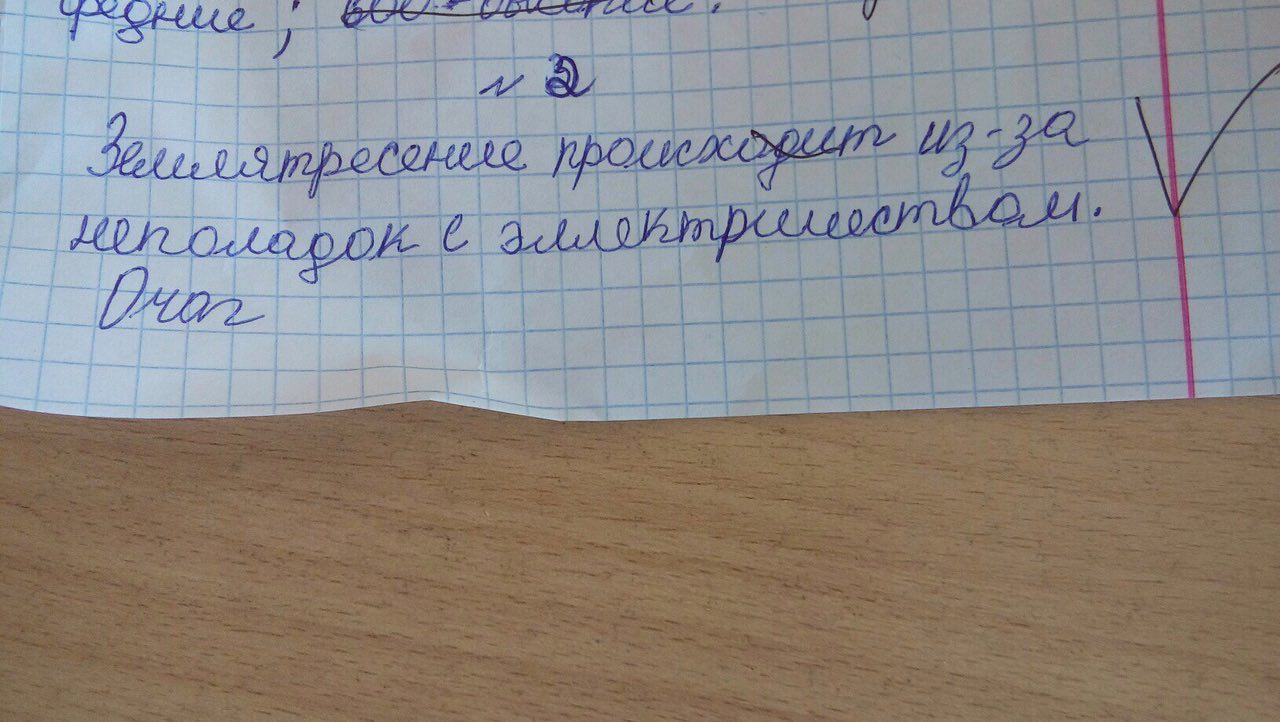 средние;
№ 2
Землятресение происходит из-за
неполадок с эллектричеством.
Очаг